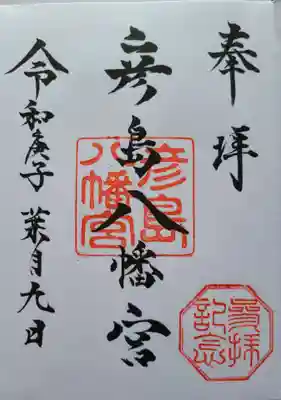 奉拝
彦島八幡宮
彦島八幡宮
参拝記念
令和庚子 葉月九日